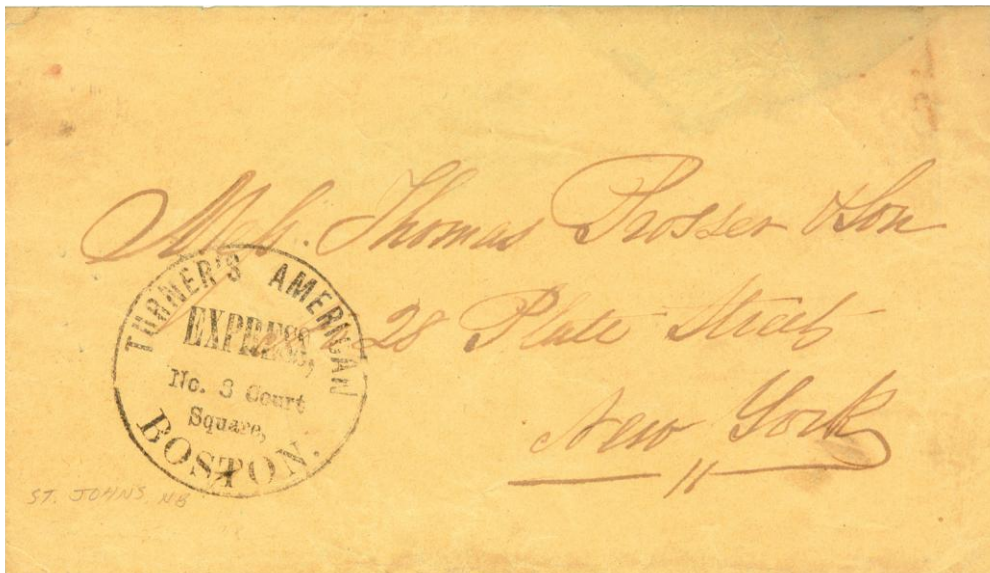 Messrs. Thomas Prosser & Son
28 Platt Street
New York
TURNER'S AMERICAN
EXPRESS,
No. 3 Court
Square,
BOSTON.
ST. JOHNS NB